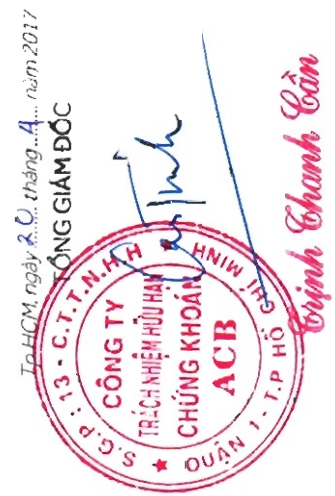 Tp.HCM, ngày 20 tháng 4 năm 2017
TỔNG GIÁM ĐỐC
S.G.P : 13 - C.T.T.N.H.H
CÔNG TY
TRÁCH NHIỆM HỮU HẠN
CHỨNG KHOÁN
ACB
QUẬN 1 - T.P HỒ CHÍ MINH
Trịnh Thanh Cần